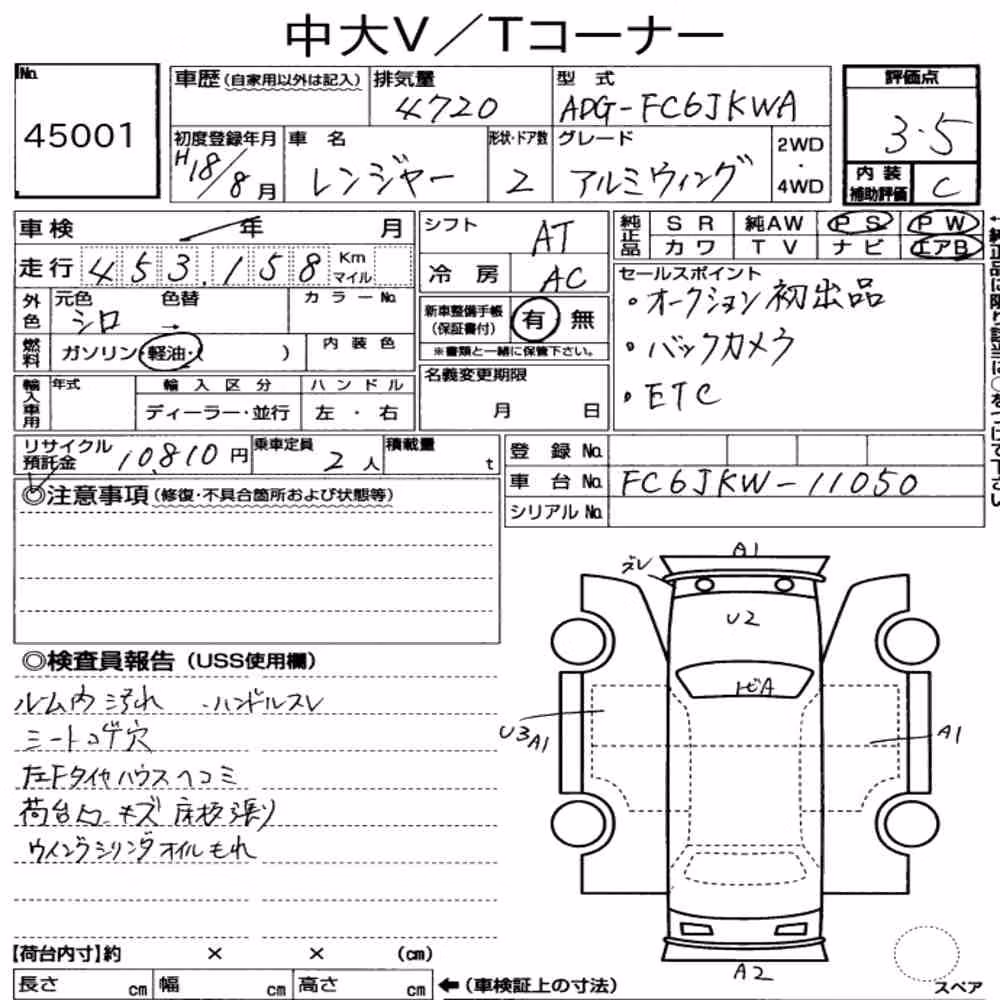 中大V／Tコーナー
No.
45001
車歴 (自家用以外は記入)
排気量
4720
型式
ADG-FC6JKWA
初度登録年月
H18/8月
車名
レンジャー
形状・ドア数
2
グレード
アルミウィング
2WD
・
4WD
評価点
3.5
内装
補助評価
C
車検 年 月
走行 453.158 Km
マイル
外色
元色 シロ
色替 →
カラーNo.
燃料
ガソリン・軽油・( )
内装色
輸入車用
年式
輸入区分
ディーラー・並行
ハンドル
左・右
シフト AT
冷房 AC
新車整備手帳
(保証書付)
有 無
※書類と一緒に保管下さい。
名義変更期限
月 日
純正品
SR 純AW PS PW
カワ TV ナビ エアB
セールスポイント
・オークション初出品
・バックカメラ
・ETC
←純正品に限り該当に○をつけて下さい
リサイクル
預託金 10,810円
乗車定員
2人
積載量
t
登録No.
車台No. FC6JKW-11050
シリアルNo.
◎注意事項 (修復・不具合箇所および状態等)
◎検査員報告 (USS使用欄)
ルーム内汚れ ・ハンドルスレ
シートコゲ穴
左Fタイヤハウスヘコミ
荷台内キズ 床板張り
ウイングシリンダオイルもれ
A1
ズレ
U2
トビA
U3A1
A1
A2
スペア
【荷台内寸】約 × × (cm)
長さ cm 幅 cm 高さ cm
←(車検証上の寸法)